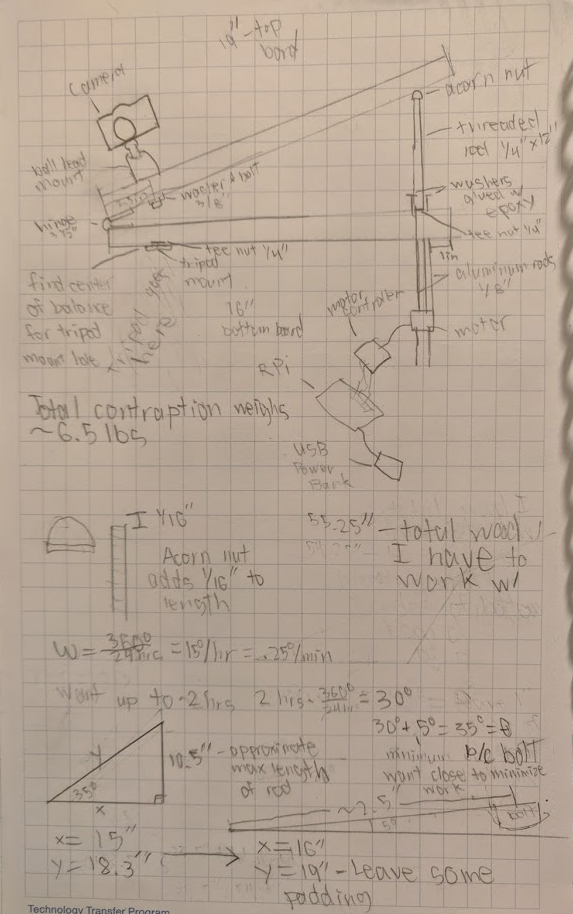 19" - top
bord
camera
acorn nut
threaded
rod 1/4" x 12"
ball head
mount
washer & bolt
3/8"
washers
glued w/
epoxy
hinge
tee nut 1/4"
tee nut 1/4"
1in
tripod
mount
aluminum rods
1/8"
find center
of balance
for tripod
mount hole
tripod goes
here
16"
bottom board
motor controller
motor
RPi
Total contraption weighs
~6.5 lbs
USB
Power
Bank
I 1/16"
Acorn nut
adds 1/16" to
length
55.25" - total wood
I have to
work w/
W = 360°/24hrs = 15°/hr = .25°/min
Want up to ~2 hrs 2 hrs · 360°/24hr = 30°
30° + 5° = 35° = θ
minimum b/c bolt
want close to minimize
work
y
10.5" - approximate
max length
of rod
35°
x
~2.5"
5°
bolt
x = 15"
y = 18.3"
x = 16"
y = 19" - Leave some
padding
Technology Transfer Program